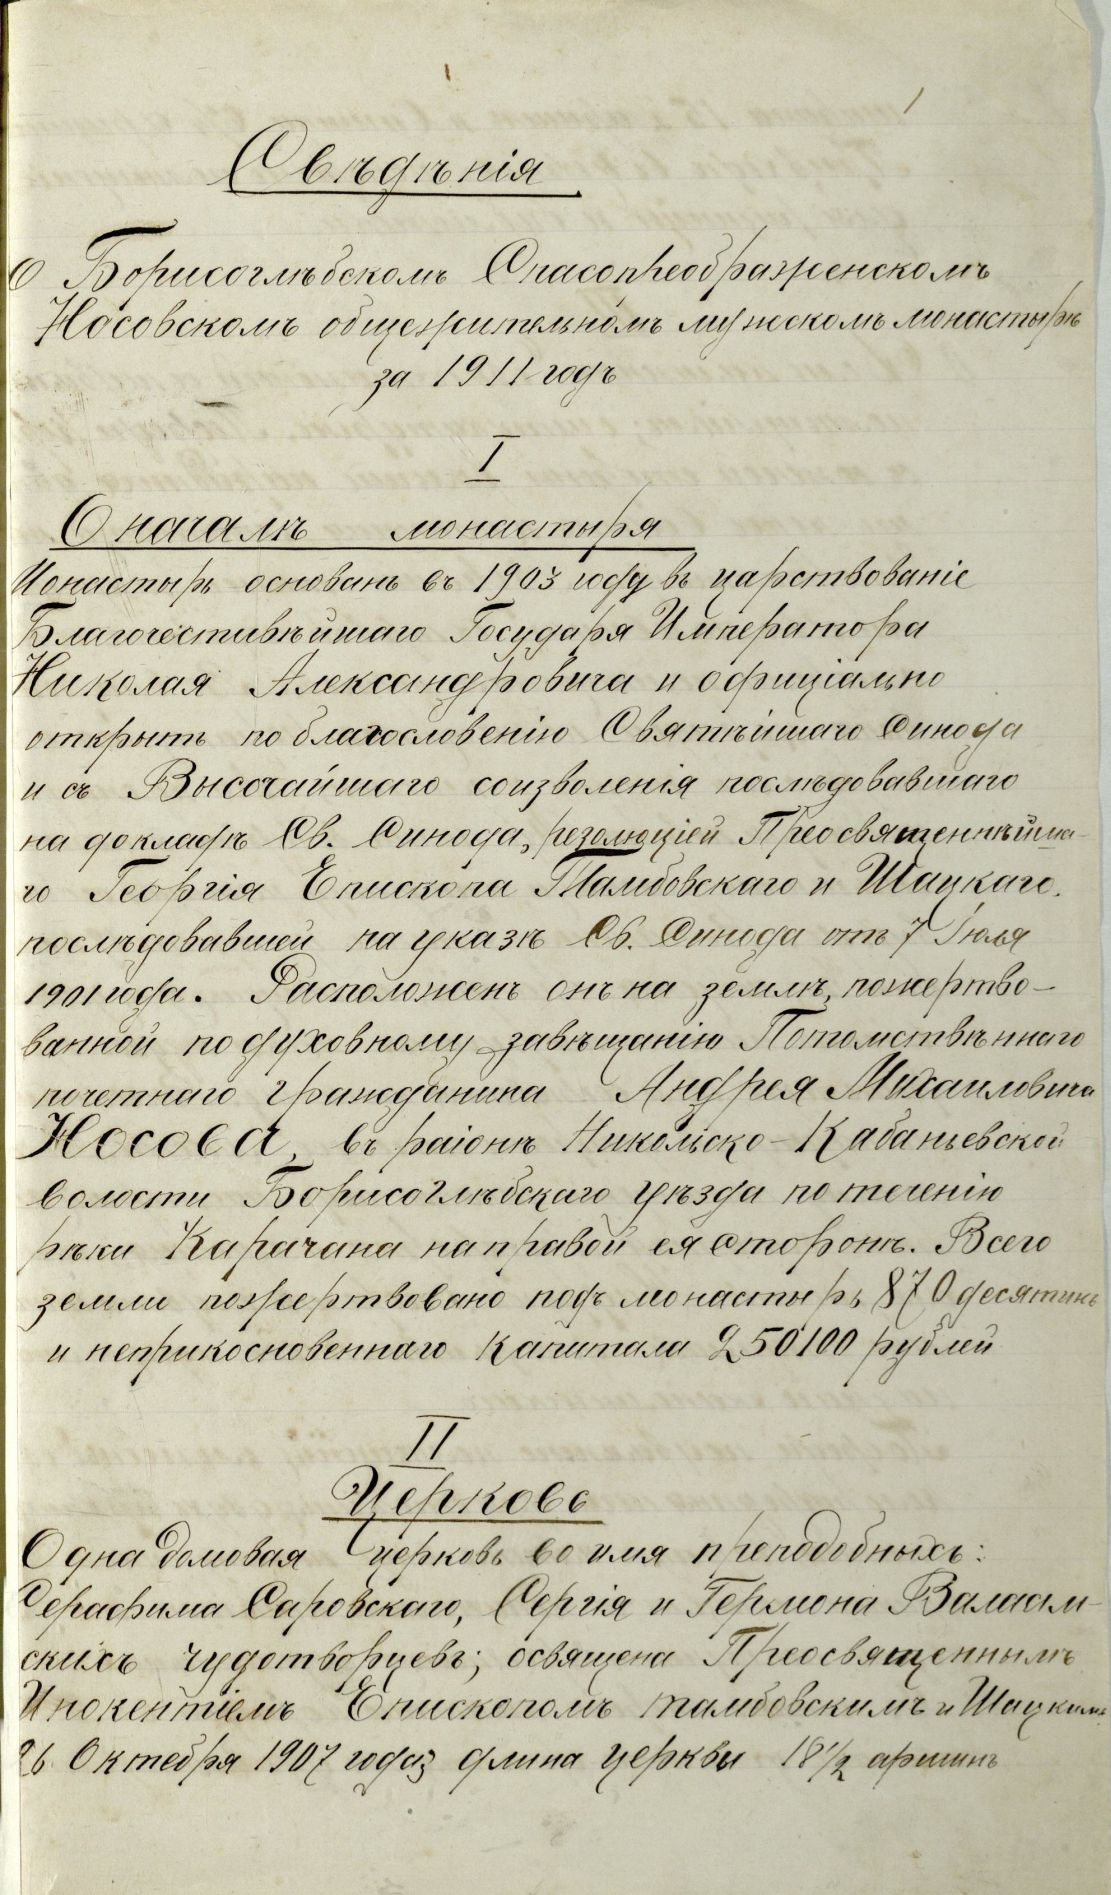 1
Свѣдѣнія
О Борисоглѣбскомъ Спасопреображенскомъ
Носовскомъ общежительномъ мужскомъ монастырѣ
за 1911 годъ
I
О началѣ монастыря
Монастырь основанъ въ 1903 году въ царствованіе
Благочестивѣйшаго Государя Императора
Николая Александровича и офиціально
открытъ по благословенію Святѣйшаго Синода
и съ Высочайшаго соизволенія послѣдовавшаго
на докладѣ Св. Синода, резолюціей Преосвященнѣйша-
го Георгія Епископа Тамбовскаго и Шацкаго,
послѣдовавшей на указѣ Св. Синода отъ 7 Іюля
1901 года. Расположенъ онъ на землѣ, пожертво-
ванной по духовному завѣщанію Потомствѣннаго
почетнаго гражданина Андрея Михаиловича
Носова, въ раіонѣ Никольско-Кабаньевской
волости Борисоглѣбскаго уѣзда по теченію
рѣки Карачана на правой ея сторонѣ. Всего
земли пожертвовано подъ монастырь 870 десятинъ
и неприкосновеннаго капитала 250100 рублей
II
Церковь
Одна домовая церковь во имя преподобныхъ:
Серафима Саровскаго, Сергія и Гермона Валаам-
скихъ чудотворцевъ; освящена Преосвященнымъ
Инокентіемъ Епископомъ тамбовскимъ и Шацкимъ
26 Октебря 1907 года длина церквы 18 1/2 аршинъ